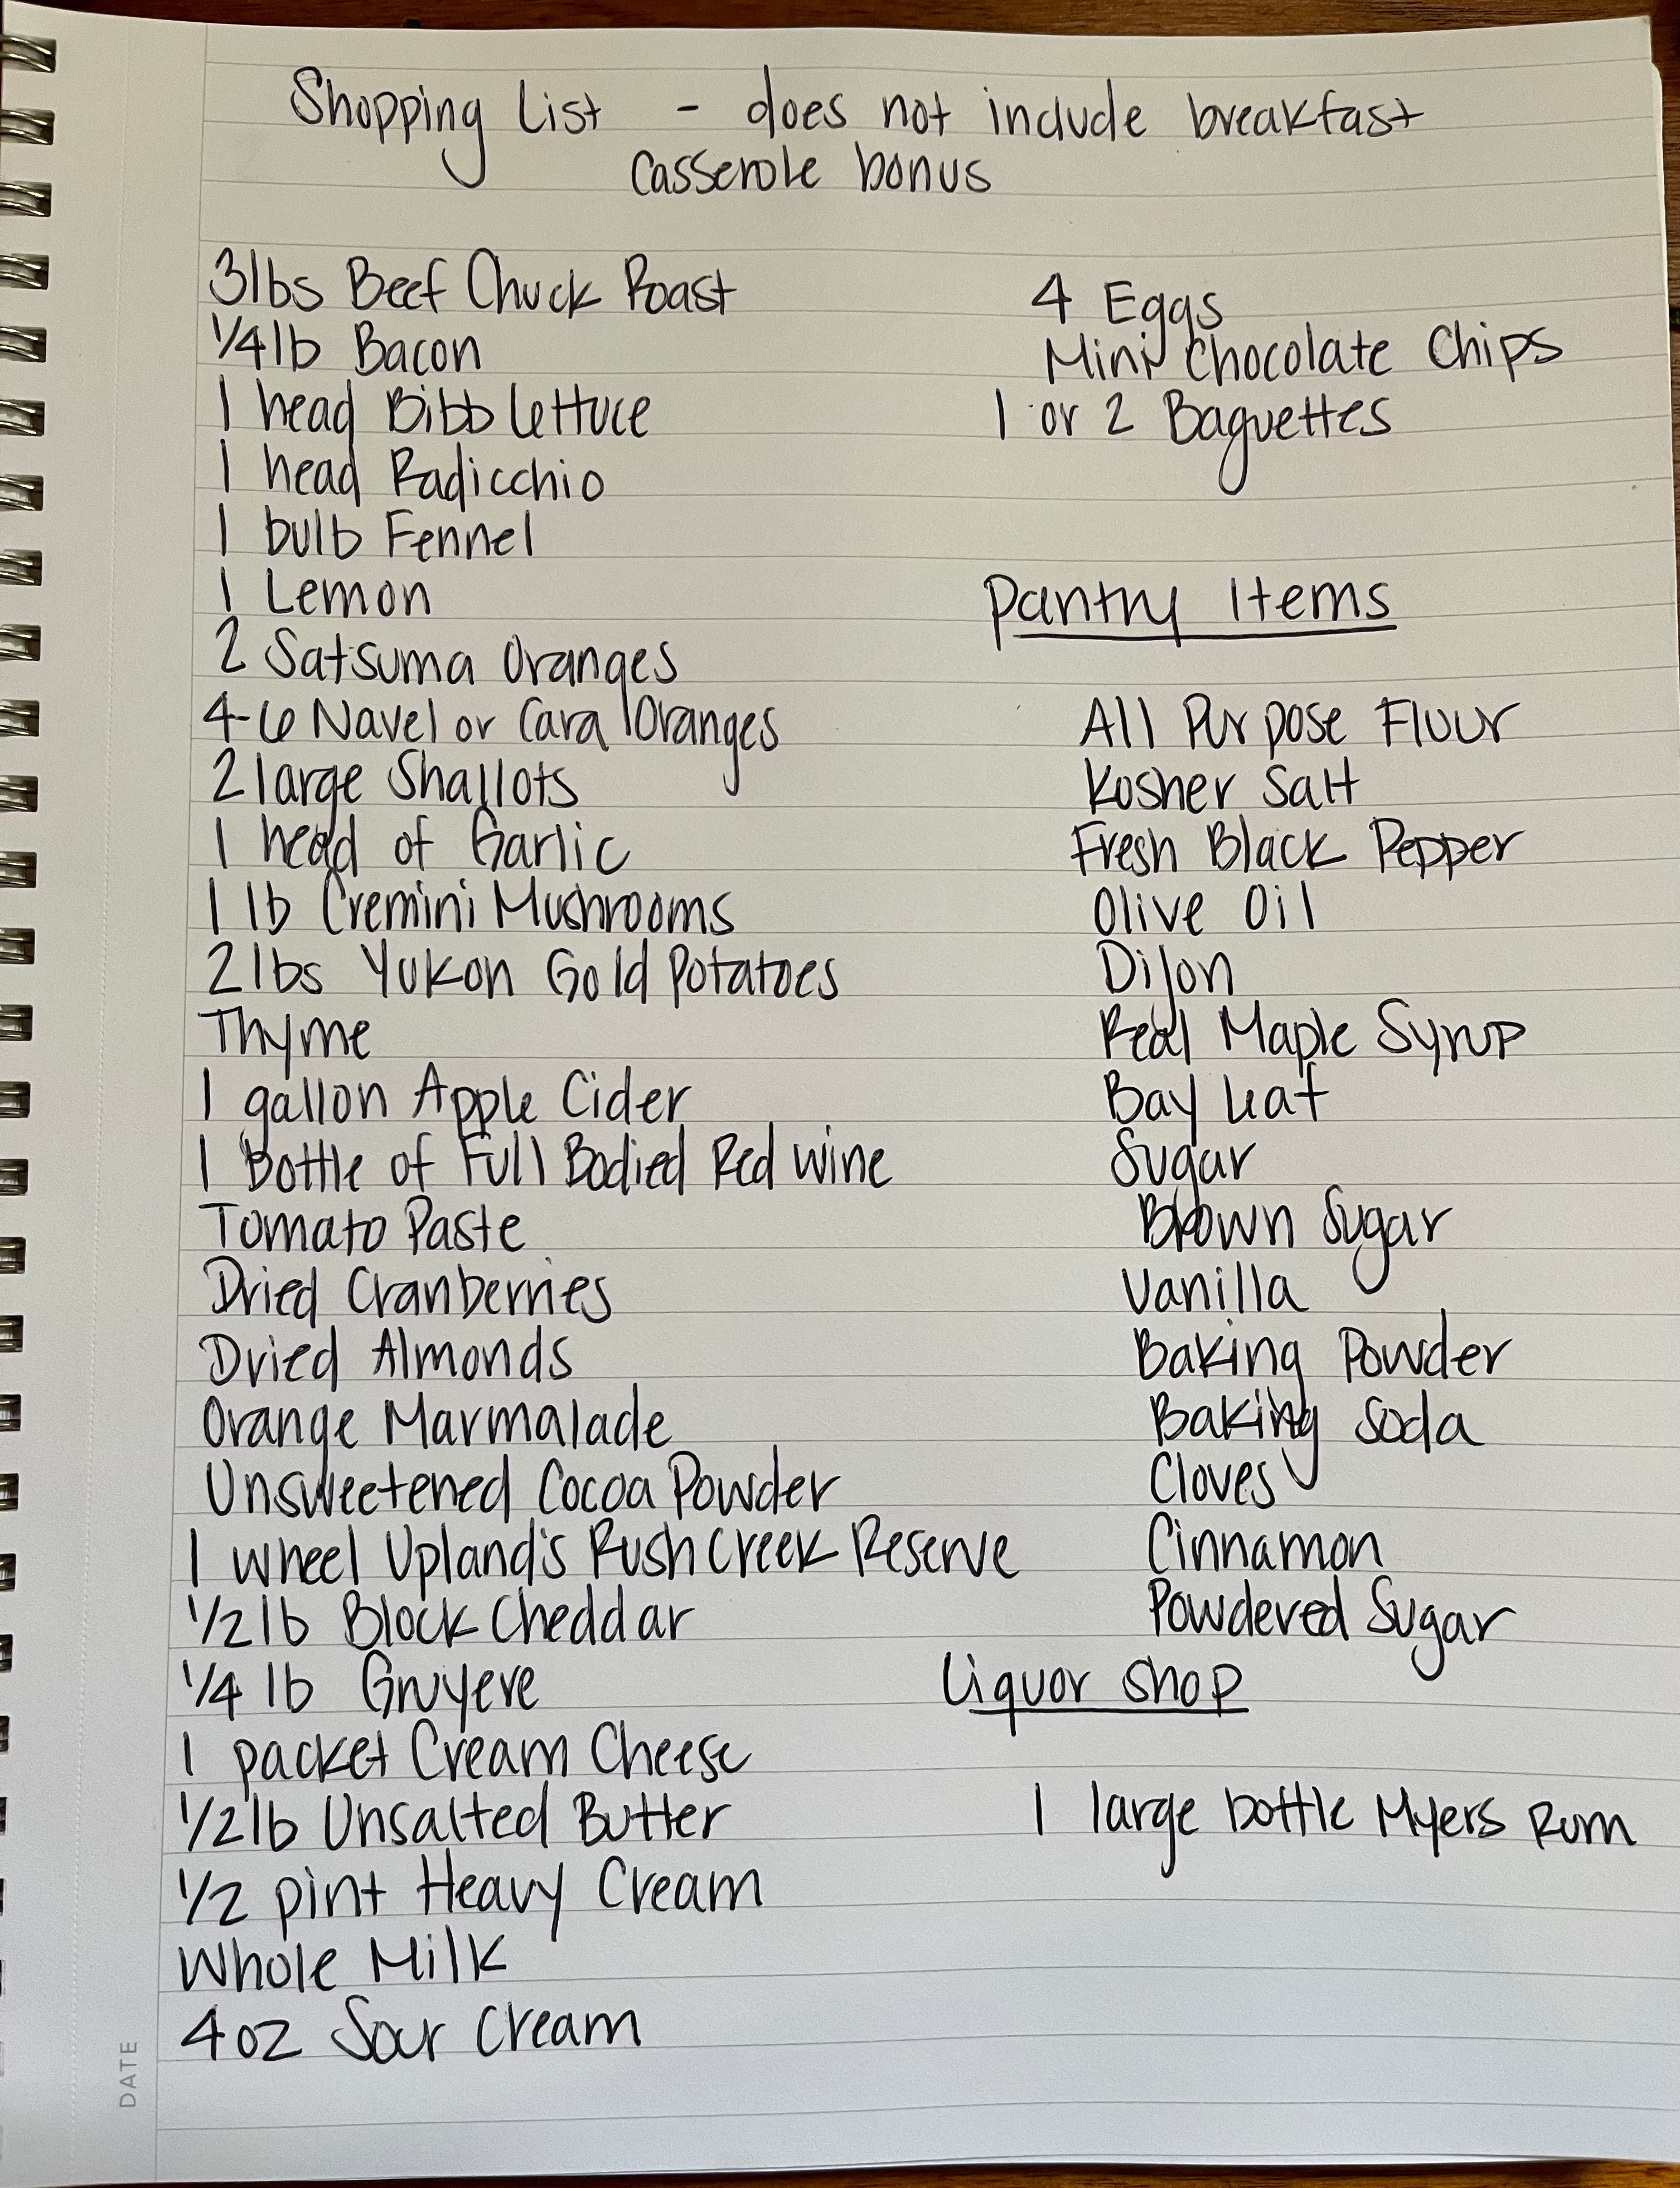 Shopping List - does not include breakfast
Casserole bonus
3lbs Beef Chuck Roast
1/4 lb Bacon
1 head Bibb Lettuce
1 head Radicchio
1 bulb Fennel
1 Lemon
2 Satsuma Oranges
4-6 Navel or Cara Oranges
2 large Shallots
1 head of Garlic
1 lb Cremini Mushrooms
2 lbs Yukon Gold Potatoes
Thyme
1 gallon Apple Cider
1 Bottle of Full Bodied Red Wine
Tomato Paste
Dried Cranberries
Dried Almonds
Orange Marmalade
Unsweetened Cocoa Powder
1 wheel Upland's Rush Creek Reserve
1/2 lb Block Cheddar
1/4 lb Gruyere
1 packet Cream Cheese
1/2 lb Unsalted Butter
1/2 pint Heavy Cream
Whole Milk
4 oz Sour Cream
4 Eggs
Mini Chocolate Chips
1 or 2 Baguettes
Pantry Items
All Purpose Flour
Kosher Salt
Fresh Black Pepper
Olive Oil
Dijon
Real Maple Syrup
Bay Leaf
Sugar
Brown Sugar
Vanilla
Baking Powder
Baking Soda
Cloves
Cinnamon
Powdered Sugar
Liquor Shop
1 large bottle Myers Rum
DATE